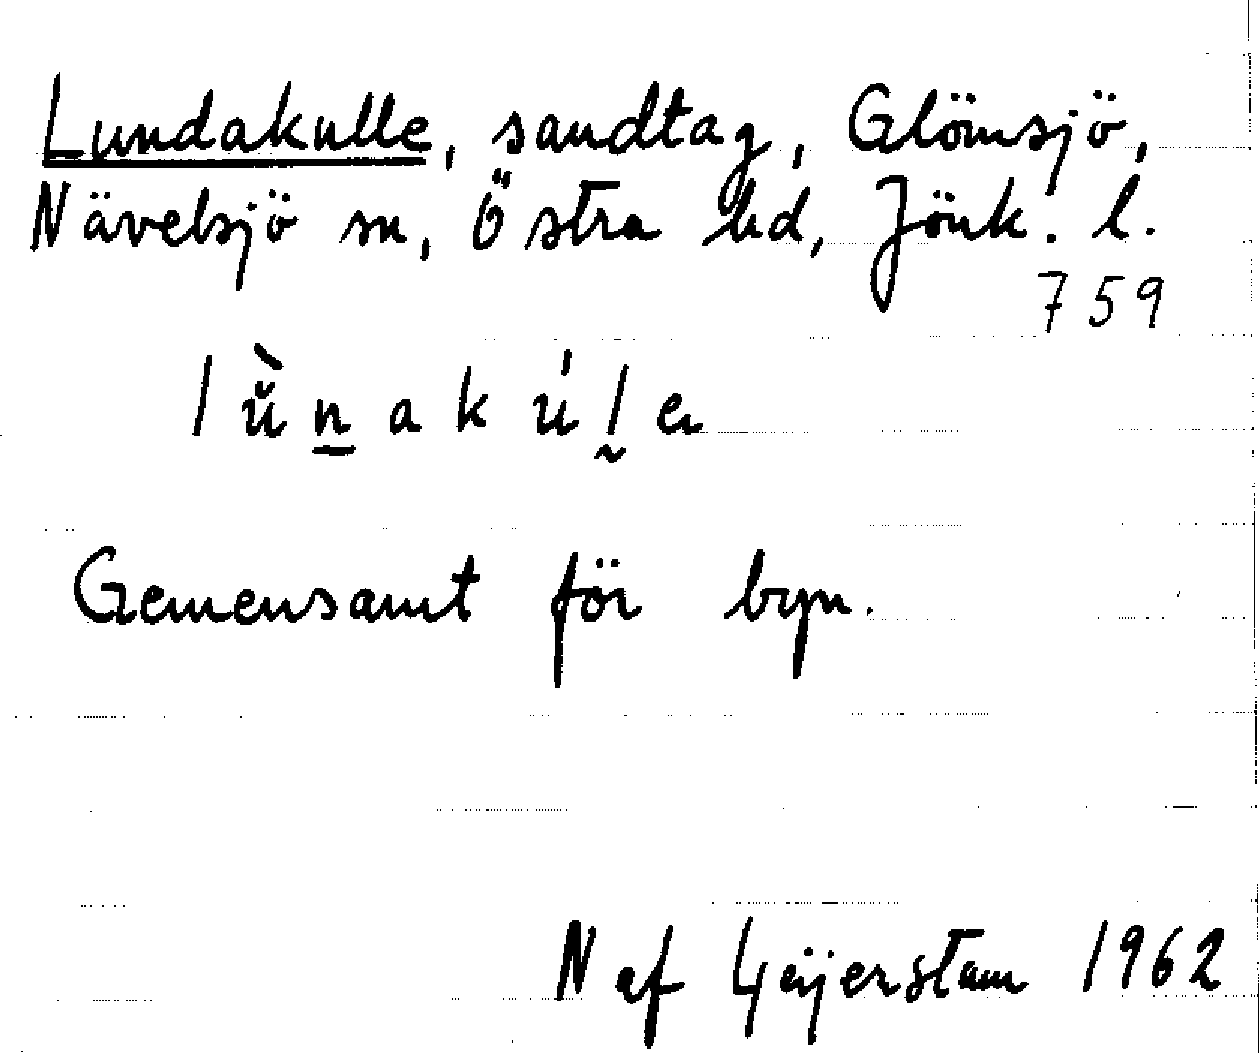 Lundakulle, sandtag, Glömsjö,
Nävelsjö sn, Östra hd, Jönk. l.
759
lŭ̀n̲akúl̰e
Gemensamt för byn.
N af Geijerstam 1962